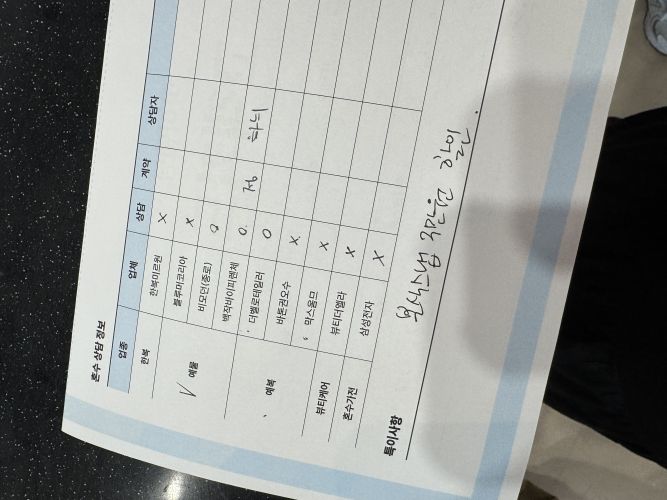 혼수 상담 정보
업종 업체 상담 계약 상담자
한복 한복미르원 X
✓ 예물 블루미코리아 X
비모던(종로) O
백작바이피렌체 O 정 하늬
예복 더벨로테일러 O
바톤권오수 X
막스옴므 X
뷰티케어 뷰티더엘라 X
혼수가전 삼성전자 X
특이사항
할인.